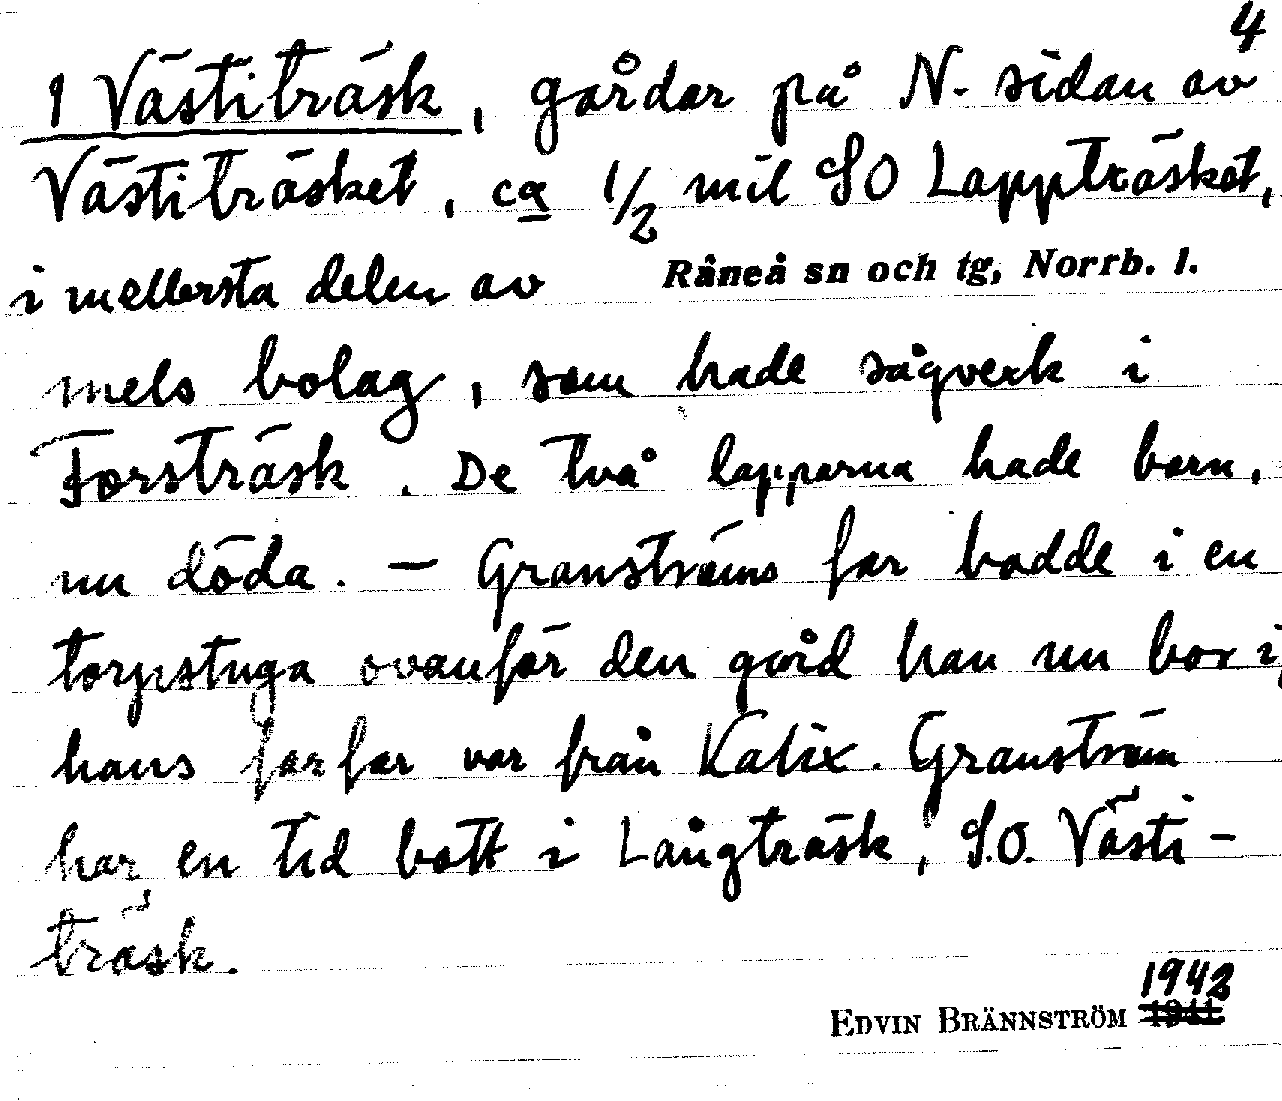 4
1 Västiträsk, gårdar på N. sidan av
Västiträsket, ca 1/2 mil SO Lappträsket,
i mellersta delen av Råneå sn och tg, Norrb. l.
mels bolag, som hade sågverk i
Forsträsk. De två lapparna hade barn,
nu döda. — Granströms far bodde i en
torpstuga ovanför den gård han nu bor i,
hans farfar var från Kalix. Granström
har en tid bott i Långträsk, S.O. Västi-
träsk.
EDVIN BRÄNNSTRÖM 1942